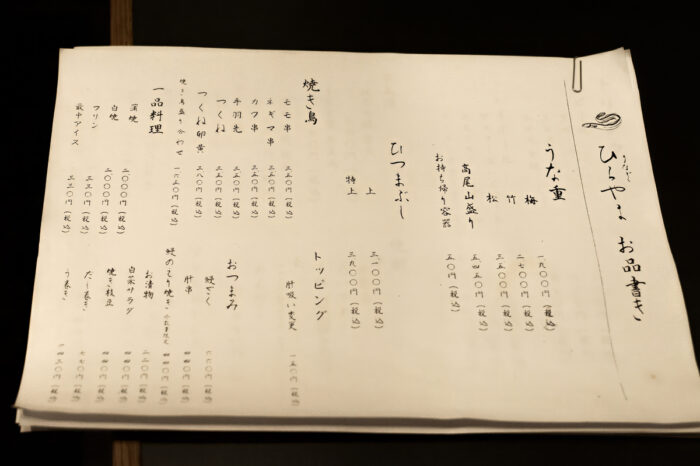 うなぎ
ひらやま お品書き
うな重
梅 一九〇〇円(税込)
竹 二七〇〇円(税込)
松 三五〇〇円(税込)
高尾山盛り 五四五〇円(税込)
お持ち帰り容器 五〇円(税込)
ひつまぶし
上 三一〇〇円(税込)
特上 三九〇〇円(税込)
トッピング
肝吸い変更 一五〇円(税込)
焼き鳥
モモ串 二五〇円(税込)
ネギマ串 二五〇円(税込)
カワ串 二五〇円(税込)
手羽先 二五〇円(税込)
つくね 二五〇円(税込)
つくね卵黄 二八〇円(税込)
焼き鳥盛り合わせ 一六五〇円(税込)
おつまみ
鰻ざく
肝串
お漬物 二二〇円(税込)
白菜サラダ
焼き枝豆
だし巻き 七七〇円(税込)
う巻き
一品料理
蒲焼 二〇〇〇円(税込)
白焼 二〇〇〇円(税込)
プリン 三三〇円(税込)
最中アイス 三三〇円(税込)